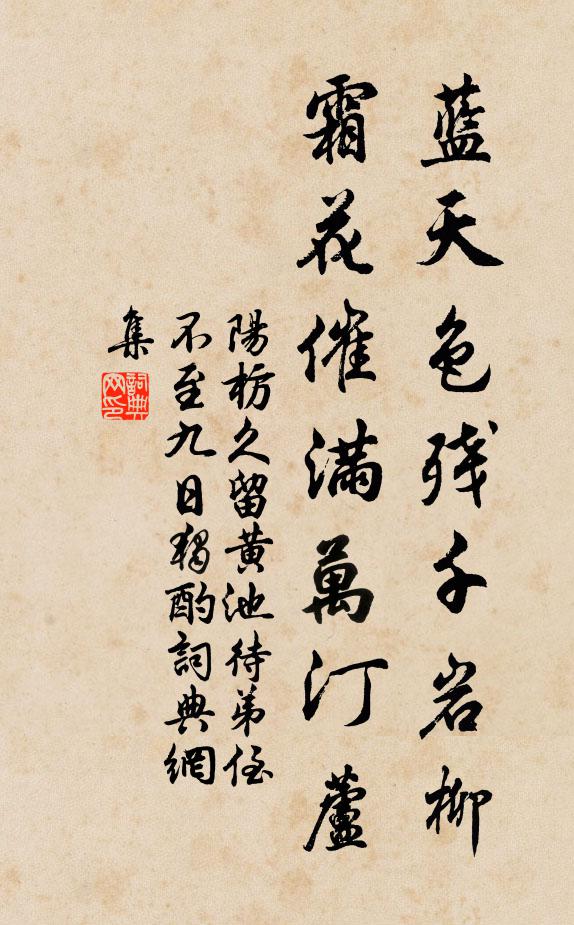 藍天色残千岩柳
霜花催滿萬汀蘆
陽枋久留黄池待弟侄
不至九日獨酌詞典網
集
詞典
网印